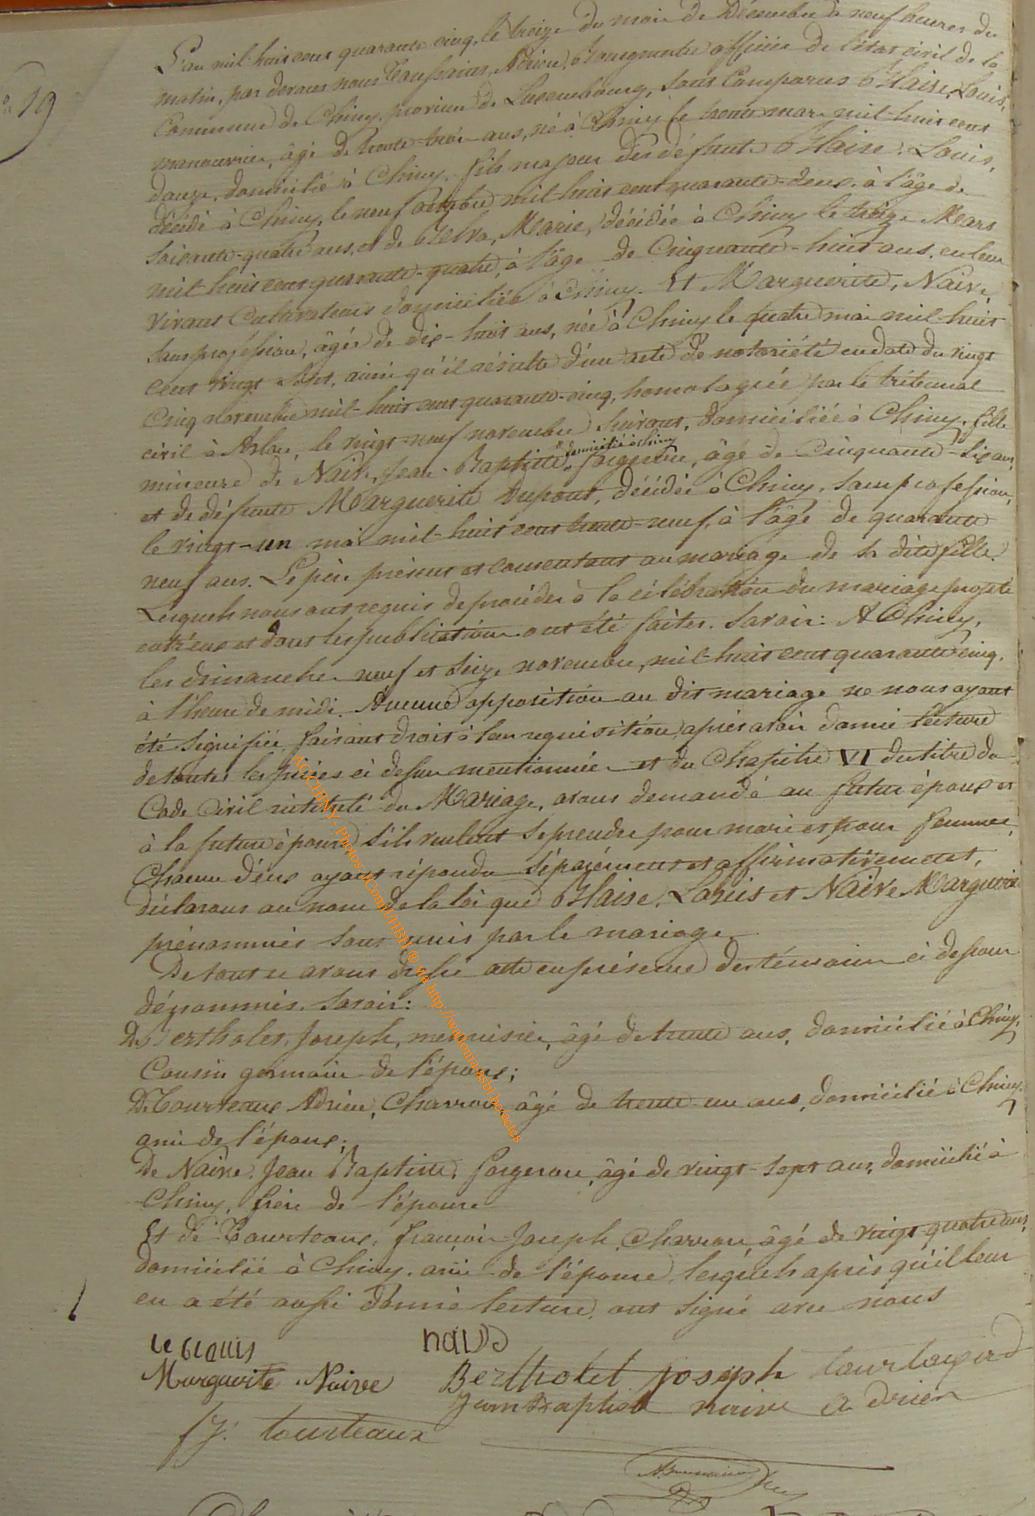 N° 19
L'an mil huit cent quarante cinq, le treize du mois de Décembre à neuf heures du
matin, par devant nous Adrien officier de l'état civil de la
Commune de Chiny, province de Luxembourg, sont comparus Blaise, Louis,
manouvrier, âgé de trente trois ans, né à Chiny le mars mil huit cent
douze, domicilié à Chiny, fils majeur des défunts Blaise, Louis,
décédé à Chiny, le neuf octobre mil huit cent quarante-deux, à l'âge de
soixante-quatre ans, et de Marie, décédée à Chiny le treize Mars
mil huit cent quarante-quatre, à l'âge de Cinquante-huit ans, en leur
vivant Cultivateurs domiciliés à Chiny. Et Marguerite, Naive
sans profession, âgée de dix-huit ans, née à Chiny le quatre mai mil huit
cent vingt sept, ainsi qu'il résulte d'un acte de notoriété en date du vingt
cinq novembre mil-huit cent quarante-cinq, homologuée par le tribunal
civil à Arlon, le vingt-neuf novembre suivant, domiciliée à Chiny, fille
mineure de Naive, Jean-Baptiste, domicilié à Chiny forgeron, âgé de Cinquante-six ans,
et de défunte Marguerite Dupont, décédée à Chiny, sans profession,
le vingt-un mai mil-huit cent trente-neuf, à l'âge de quarante
neuf ans. Le père présent et consentant au mariage de sa dite fille.
Lesquels nous ont requis de procéder à la célébration du mariage projeté
entr'eux et dont les publications ont été faites. Savoir: A Chiny,
les dimanches neuf et seize novembre, mil-huit cent quarante cinq,
à l'heure de midi. Aucune opposition au dit mariage ne nous ayant
été signifiée, faisant droit à leur requisition, après avoir donné lecture
de toutes les pièces ci dessus mentionnées et du Chapitre VI du titre du
Code Civil intitulé du Mariage, avons demandé au futur époux et
à la future épouse s'ils veulent se prendre pour mari et pour femme,
Chacun d'eux ayant répondu séparément et affirmativement,
déclarons au nom de la loi que Blaise, Louis et Naive Marguerite
prénommés sont unis par le mariage.
De tout ce avons dressé acte en présence des témoins ci dessous
dénommés. Savoir:
De Bertholet, Joseph, menuisier, âgé de trente ans, domicilié à Chiny,
Cousin germain de l'époux;
De Tourteaux Adrien, Charron, âgé de trente-un ans, domicilié à Chiny,
ami de l'époux;
De Naive, Jean Baptiste, forgeron, âgé de vingt-sept ans, domicilié à
Chiny, frère de l'épouse
Et de Tourteaux, françois Joseph, Charron, âgé de vingt quatre ans,
domicilié à Chiny, ami de l'épouse, lesquels après qu'il leur
en a été aussi donné lecture, ont signé avec nous
Marguerite Naive Bertholet joseph
Jean Baptiste naive Adrien
f j. tourteaux